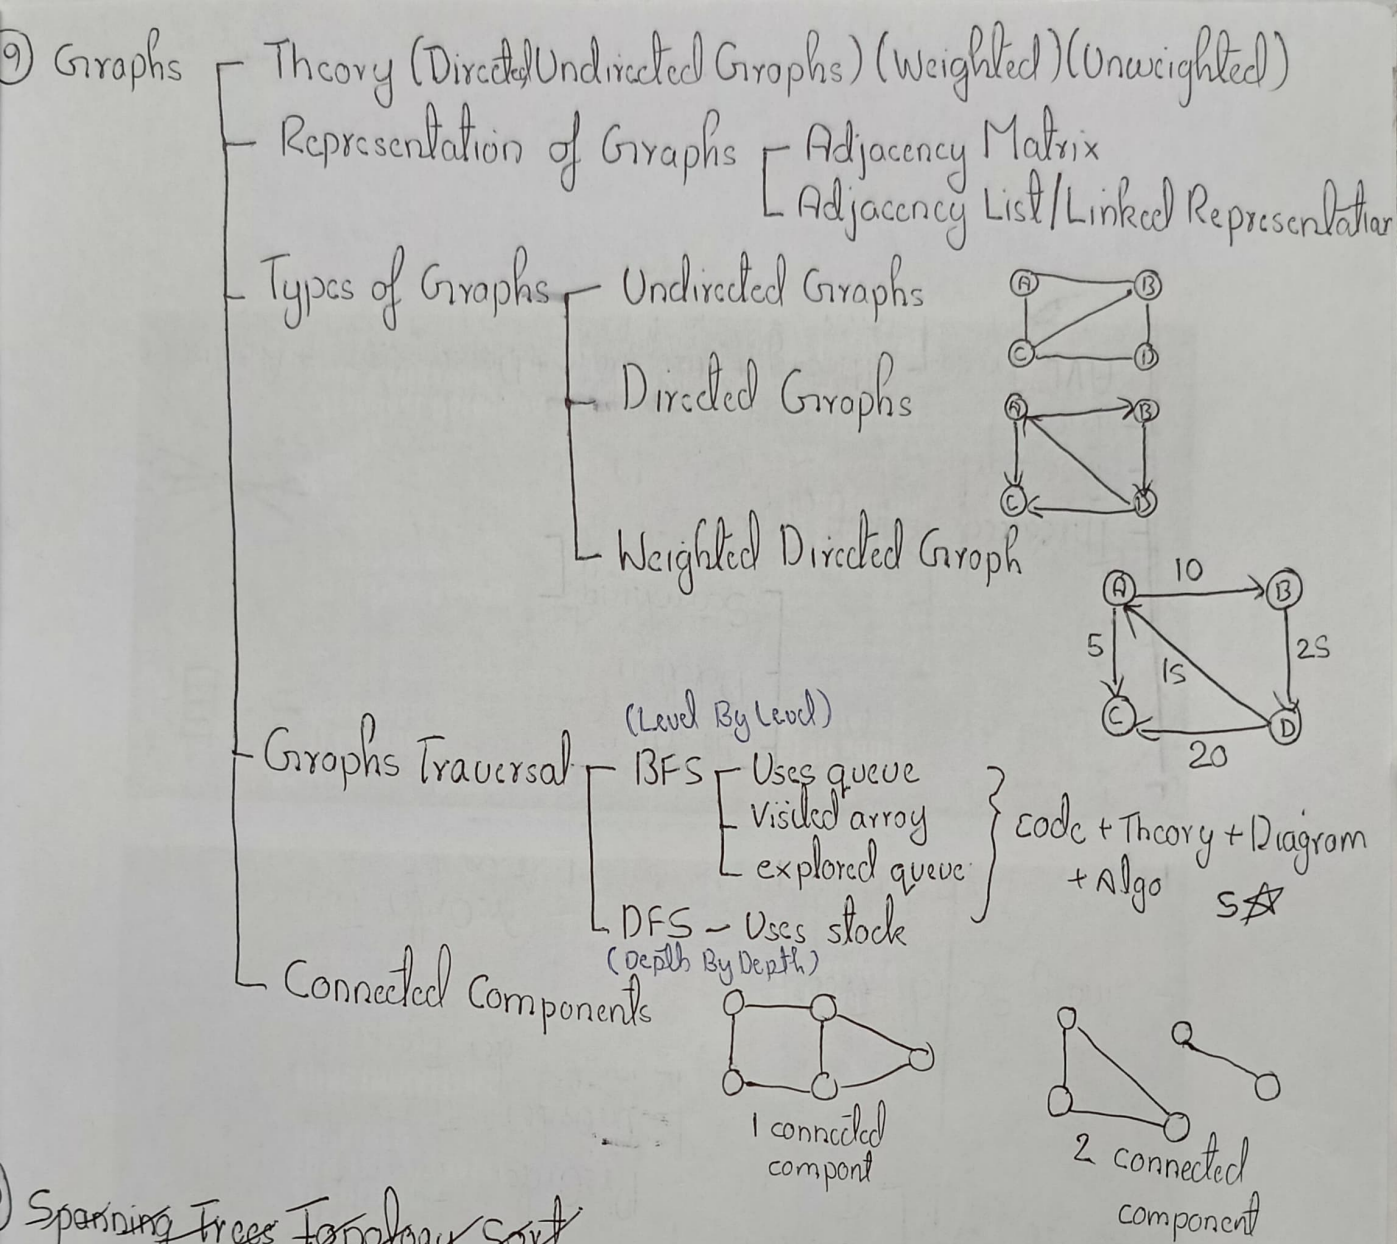 9) Graphs Theory (Directed/Undirected Graphs) (Weighted) (Unweighted)
Representation of Graphs Adjacency Matrix
Adjacency List/Linked Representation
Types of Graphs Undirected Graphs
A B
C D
Directed Graphs
A B
C D
Weighted Directed Graph
A 10 B
5 15 25
C 20 D
(Level By Level)
Graphs Traversal BFS Uses queue
Visited array
explored queue
code + Theory + Diagram
+ Algo 5☆
DFS – Uses stack
(Depth By Depth)
Connected Components
1 connected
compont
2 connected
component
Spanning Trees Topology Sort